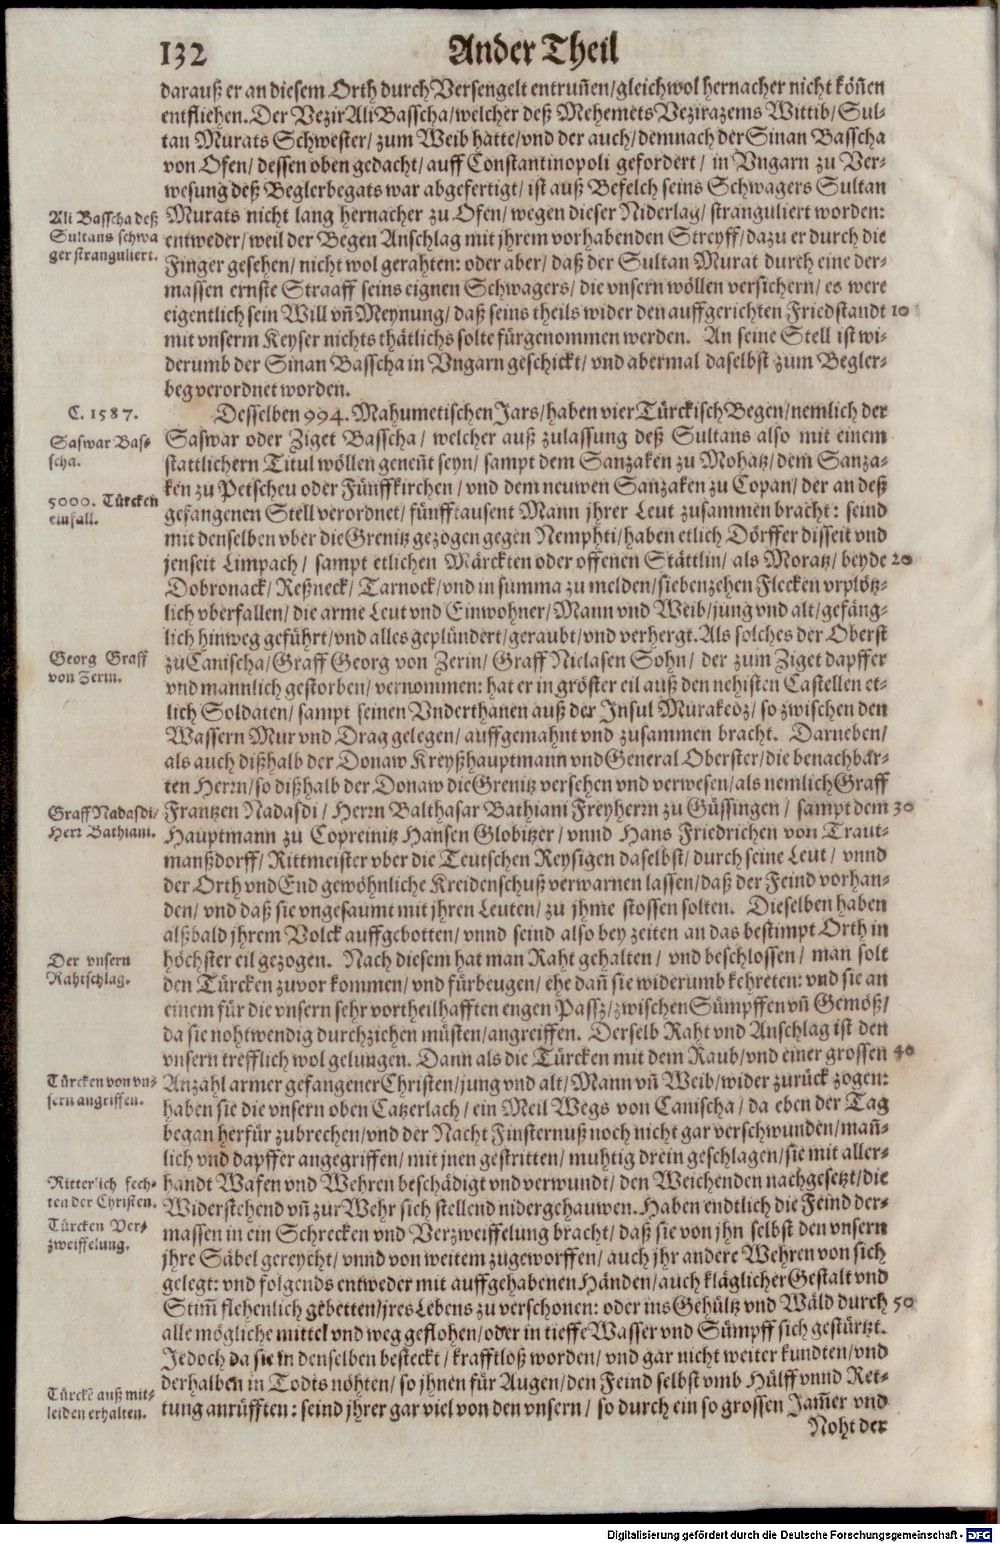 132
Ander Theil
darauß er an diesem Orth durch Versengelt entruñen/ gleichwol hernacher nicht köñen
entfliehen. Der Vezir Ali Basscha/ welcher deß Mehemets Vezirazems Wittib/ Sul-
tan Murats Schwester/ zum Weib hatte/ vnd der auch/ demnach der Sinan Basscha
von Ofen/ dessen oben gedacht/ auff Constantinopoli gefordert/ in Vngarn zu Ver-
wesung deß Beglerbegats war abgefertigt/ ist auß Befelch seins Schwagers Sultan
Murats nicht lang hernacher zu Ofen/ wegen dieser Niderlag/ stranguliert worden:
entweder/ weil der Begen Anschlag mit jhrem vorhabenden Streyff/ dazu er durch die
Finger gesehen/ nicht wol gerahten: oder aber/ daß der Sultan Murat durch eine der-
massen ernste Straaff seins eignen Schwagers/ die vnsern wöllen versichern/ es were
eigentlich sein Will vñ Meynung/ daß seins theils wider den auffgerichten Friedstandt 10
mit vnserm Keyser nichts thätlichs solte fürgenommen werden. An seine Stell ist wi-
derumb der Sinan Basscha in Vngarn geschickt/ vnd abermal daselbst zum Begler-
beg verordnet worden.
Ali Basscha deß
Sultans schwa
ger stranguliert.
C. 1587.
Desselben 994. Mahumetischen Jars/ haben vier Türckisch Begen/ nemlich der
Saswar oder Ziget Basscha/ welcher auß zulassung deß Sultans also mit einem
stattlichern Titul wöllen geneñt seyn/ sampt dem Sanzaken zu Mohatz/ dem Sanza-
ken zu Petscheu oder Fünffkirchen/ vnd dem neuwen Sanzaken zu Copan/ der an deß
gefangenen Stell verordnet/ fünfftausent Mann jhrer Leut zusammen bracht: seind
mit denselben vber die Grenitz gezogen gegen Nemphti/ haben etlich Dörffer disseit vnd
jenseit Limpach/ sampt etlichen Märckten oder offenen Stättlin/ als Moratz/ beyde 20
Dobronack/ Reßneck/ Tarnock/ vnd in summa zu melden/ siebenzehen Flecken vrplötz-
lich vberfallen/ die arme Leut vnd Einwohner/ Mann vnd Weib/ jung vnd alt/ gefäng-
lich hinweg geführt/ vnd alles geplündert/ geraubt/ vnd verhergt. Als solches der Oberst
zu Canischa/ Graff Georg von Zerin/ Graff Niclasen Sohn/ der zum Ziget dapffer
vnd mannlich gestorben/ vernommen: hat er in gröster eil auß den nehisten Castellen et-
lich Soldaten/ sampt seinen Vnderthanen auß der Insul Murakeoz/ so zwischen den
Wassern Mur vnd Drag gelegen/ auffgemahnt vnd zusammen bracht. Darneben/
als auch dißhalb der Donaw Kreyßhauptmann vnd General Oberster/ die benachbar-
ten Herrn/ so dißhalb der Donaw die Grenitz versehen vnd verwesen/ als nemlich Graff
Frantzen Nadasdi/ Herrn Balthasar Bathiani Freyherrn zu Güssingen/ sampt dem 30
Hauptmann zu Copreinitz Hansen Globitzer/ vnnd Hans Friedrichen von Traut-
manßdorff/ Rittmeister vber die Teutschen Reysigen daselbst/ durch seine Leut/ vnnd
der Orth vnd End gewöhnliche Kreidenschuß verwarnen lassen/ daß der Feind vorhan-
den/ vnd daß sie vngesaumt mit jhren Leuten/ zu jhme stossen solten. Dieselben haben
alßbald jhrem Volck auffgebotten/ vnnd seind also bey zeiten an das bestimpt Orth in
höchster eil gezogen. Nach diesem hat man Raht gehalten/ vnd beschlossen/ man solt
den Türcken zuvor kommen/ vnd fürbeugen/ ehe dañ sie widerumb kehreten: vnd sie an
einem für die vnsern sehr vortheilhafften engen Passz/ zwischen Sümpffen vñ Gemöß/
da sie nohtwendig durchziehen müsten/ angreiffen. Derselb Raht vnd Anschlag ist den
vnsern trefflich wol gelungen. Dann als die Türcken mit dem Raub/ vnd einer grossen 40
Anzahl armer gefangener Christen/ jung vnd alt/ Mann vñ Weib/ wider zurück zogen:
haben sie die vnsern oben Catzerlach/ ein Meil Wegs von Canischa/ da eben der Tag
began herfür zubrechen/ vnd der Nacht Finsternuß noch nicht gar verschwunden/ mañ-
lich vnd dapffer angegriffen/ mit jnen gestritten/ muhtig drein geschlagen/ sie mit aller-
handt Wafen vnd Wehren beschädigt vnd verwundt/ den Weichenden nachgesetzt/ die
Widerstehend vñ zur Wehr sich stellend nidergehauwen. Haben endtlich die Feind der-
massen in ein Schrecken vnd Verzweiffelung bracht/ daß sie von jhn selbst den vnsern
jhre Säbel gereycht/ vnnd von weitem zugeworffen/ auch jhr andere Wehren von sich
gelegt: vnd folgends entweder mit auffgehabenen Händen/ auch kläglicher Gestalt vnd
Stim̃ flehenlich gebetten/ jres Lebens zu verschonen: oder ins Gehültz vnd Wäld durch 50
alle mögliche mittel vnd weg geflohen/ oder in tieffe Wasser vnd Sümpff sich gestürtzt.
Jedoch da sie in denselben besteckt/ krafftloß worden/ vnd gar nicht weiter kundten/ vnd
derhalben in Todts nöhten/ so jhnen für Augen/ den Feind selbst vmb Hülff vnnd Ret-
tung anrüfften: seind jhrer gar viel von den vnsern/ so durch ein so grossen Jam̃er vnd
Noht der
Saswar Bas-
scha.
5000. Türcken
einfall.
Georg Graff
von Zerin.
Graff Nadasdi/
Herr Bathiani.
Der vnsern
Rahtschlag.
Türcken von vn-
sern angriffen.
Ritterlich fech-
ten der Christen.
Türcken Ver-
zweiffelung.
Türckẽ auß mit-
leiden erhalten.
Digitalisierung gefördert durch die Deutsche Forschungsgemeinschaft - DFG